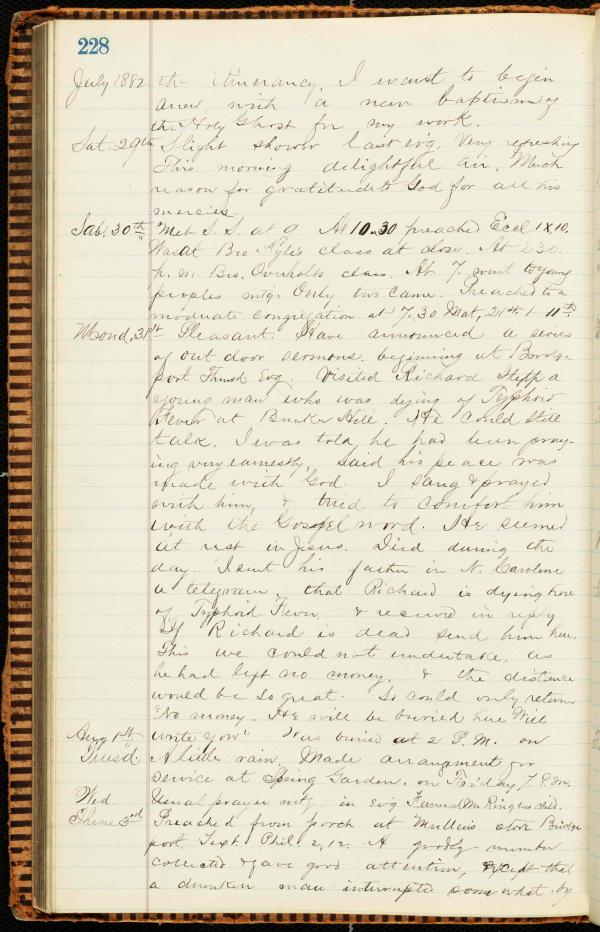 228
July 1882 the itinerancy, I want to begin
anew, with a new baptism of
the Holy Ghost for my work.
Sat. 29th Slight shower last evg. Very refreshing
This morning delightful air, Much
reason for gratitude to God for all his
mercies.
Sab. 30th Met S. S. at 9 At 10.30 preached Eccl IX 10.
Was at Bro class at close. At 2.30
p. m. Bro. Overholts class. At 7. went to young
peoples mtg. Only two came. Preached to a
moderate congregation at 7.30 Mat, 21st 1-11th
Mond, 31st Pleasant. Have announced a series
of out door sermons. beginning at Bridge
port Thursd Evg. Visited Richard Stepp a
young man who was dying of Typhoid
Fever at Bunker Hill. He could still
talk. I was told, he had been pray-
ing very earnestly, said his peace was
made with God. I sang & prayed
with him, & tried to comfort him
with the Gospel word. He seemed
at rest in Jesus. Died during the
day. I sent his father in N. Caroline
a telegram, that Richard is dying here
of Typhoid Fever, & received in reply
If Richard is dead send him here.
This we could not undertake, as
he had left no money, & the distance
would be so great. So could only return
"No money. He will be buried here Will
write you" Was buried at 2 P.M. on
Aug 1st
Tuesd. A little rain, Made arrangement for
service at Spring Garden. on Friday 7 P.M.
Wed. Usual prayer mtg. in evg
3d Preached from porch at Mullins store Bridge
port Text Phil. 2, 12. A goodly number
collected & gave good attention, except that
a drunken man interrupted somewhat by